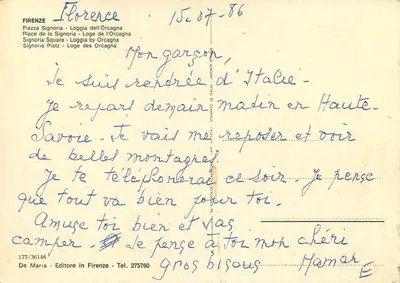 Florence 15-07-86
FIRENZE
Piazza Signoria - Loggia dell'Orcagna
Place de la Signoria - Loge de l'Orcagna
Signoria Square - Loggia by Orcagna
Signoria Platz - Loge des Orcagna
Mon garçon,
Je suis rentrée d'Italie.
Je repars demain matin en Haute-
Savoie. Je vais me reposer et voir
de belles montagnes.
Je te téléphonerai ce soir. Je pense
que tout va bien pour toi.
Amuse toi bien et vas
camper. Je pense à toi mon chéri
gros bisous Maman
177/36146
De Maria - Editore in Firenze - Tel. 275760